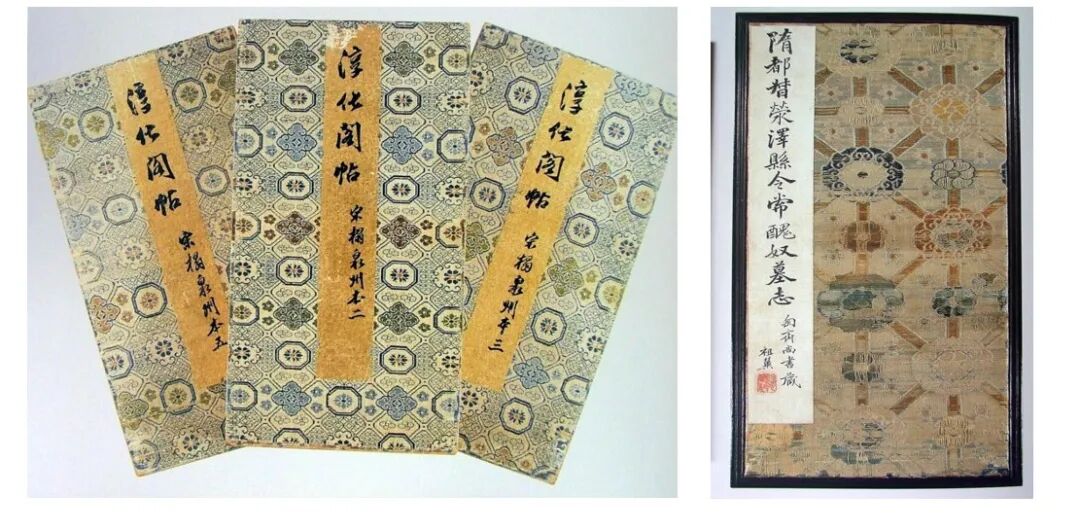 淳化阁帖
宋搨泉州本五
淳化阁帖
宋搨泉州本二
淳化阁帖
宋搨泉州本三
隋都督荥泽縣令常醜奴墓志
匋斋尚书藏